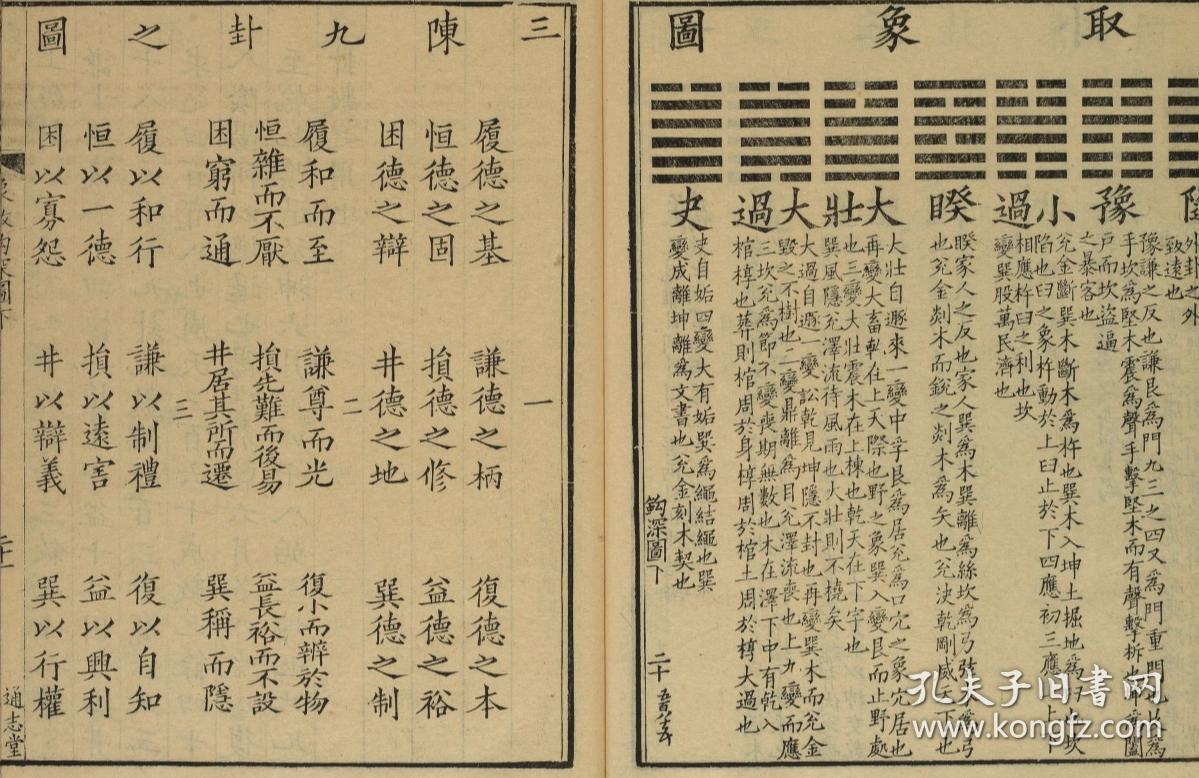 取象圖
外卦之外
致遠也
豫
豫謙之反也謙艮爲門九三之四又爲門重門也
手坎爲堅木震爲聲手擊堅木而有聲擊柝也
戶而坎盜逼
之暴客也
小過
兌金斷巽木斷木爲杵也巽木入坤土掘地爲臼也坎
陷也臼之象杵動於上臼止於下四應初三應上上下
相應杵臼之利也坎
變巽股萬民濟也
睽
睽家人之反也家人巽爲木巽離爲絲坎爲弓弦木爲弓
也兌金剡木而銳之剡木爲矢也兌決乾剛威天下也
大壯
大壯自遯來一變中孚艮爲居兌爲口穴之象穴居也
再變大畜乾在上天際也野之象巽入變艮而止野處
也三變大壯震木在上棟也乾天在下宇也
巽風隱兌澤流待風雨也大壯則不橈矣
大過
大過自遯一變訟乾見坤隱不封也再變巽木而兌金
毀之不樹也三變鼎離爲目兌澤流喪也上九變而應
三坎兌爲節不變喪期無數也木在澤下中有乾人
棺椁也葬則棺周於身椁周於棺土周於椁大過也
夬
夬自姤四變大有姤巽爲繩結繩也巽
變成離坤離爲文書也兌金刻木契也
鈎深圖下 二十
三陳九卦之圖
一
履德之基 謙德之柄 復德之本
恒德之固 損德之修 益德之裕
困德之辯 井德之地 巽德之制
二
履和而至 謙尊而光 復小而辨於物
恒雜而不厭 損先難而後易 益長裕而不設
困窮而通 井居其所而遷 巽稱而隱
三
履以和行 謙以制禮 復以自知
恒以一德 損以遠害 益以興利
困以寡怨 井以辯義 巽以行權
通志堂
孔夫子旧书网
www.kongfz.com